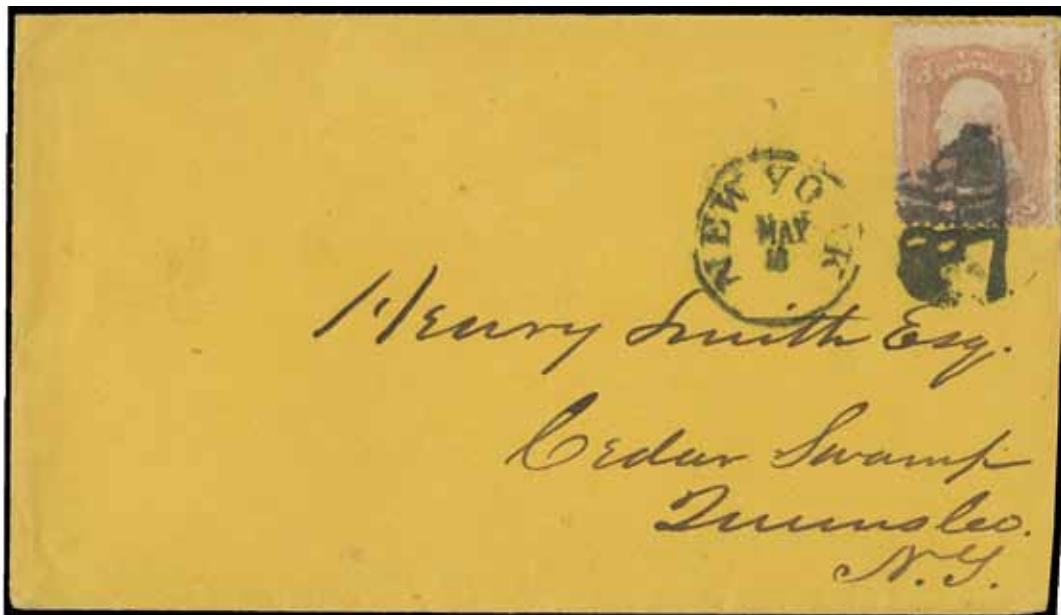 NEW YORK
MAY
3 3
Henry Smith Esq.
Cedar Swamp
Queens Co.
N.Y.